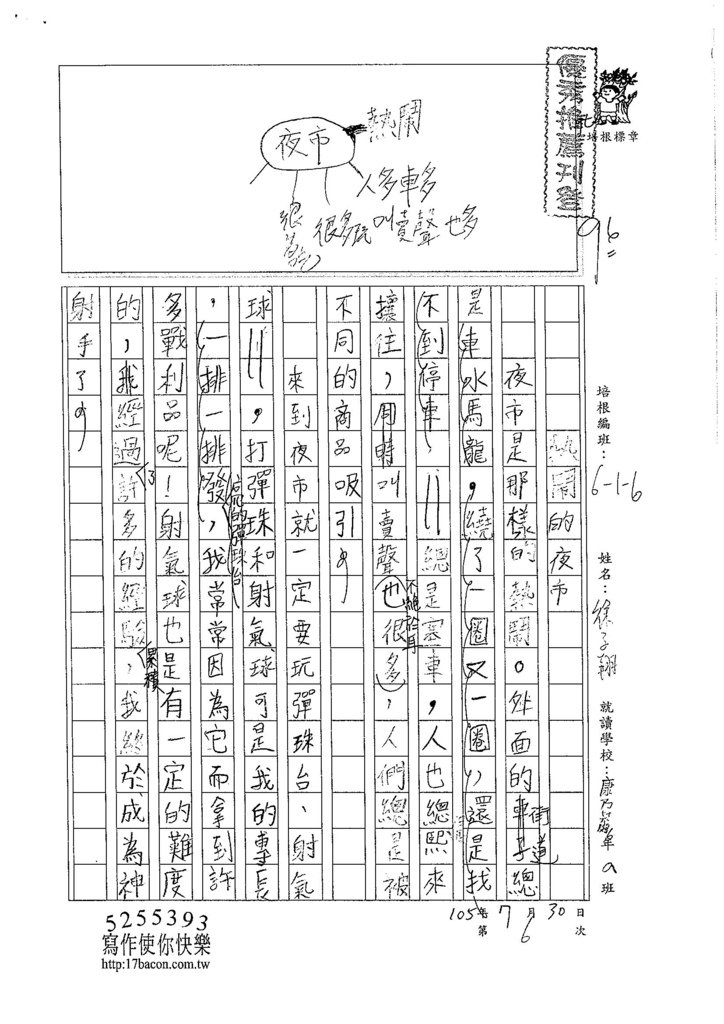 優秀推薦刊登
培根標章
96
夜市
熱鬧
人多車多
叫賣聲也多
很多
培根編班：6-1-6
姓名：徐子翔
就讀學校：康乃薾 a班
105年7月30日
第6次
熱鬧的夜市
夜市是那樣的熱鬧。外面的車子總
街道
是車水馬龍，繞了一圈又一圈，還是找
不到停車，總是塞車，人也總熙來
攘往，周時叫賣聲也很多，人們總是被
不絕於耳
不同的商品吸引。
來到夜市就一定要玩彈珠台、射氣
球，打彈珠和射氣球可是我的專長
，一排一排發，我常常因為它而拿到許
的彈珠台
多戰利品呢！射氣球也是有一定的難度
的，我經過許多的經驗，我終於成為神
了
累積
射手了。
5255393
寫作使你快樂
http:17bacon.com.tw